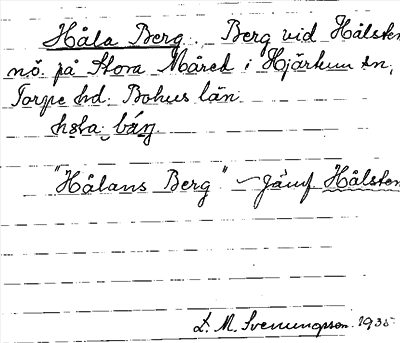 Håla Berg. Berg vid Hålsten
nö. på Stora Måred i Hjärtum sn,
Torpe hd. Bohus län
hɘla bärj
"Hålans Berg" – Jämf Hålsten
L. M. Svenungsson. 1935